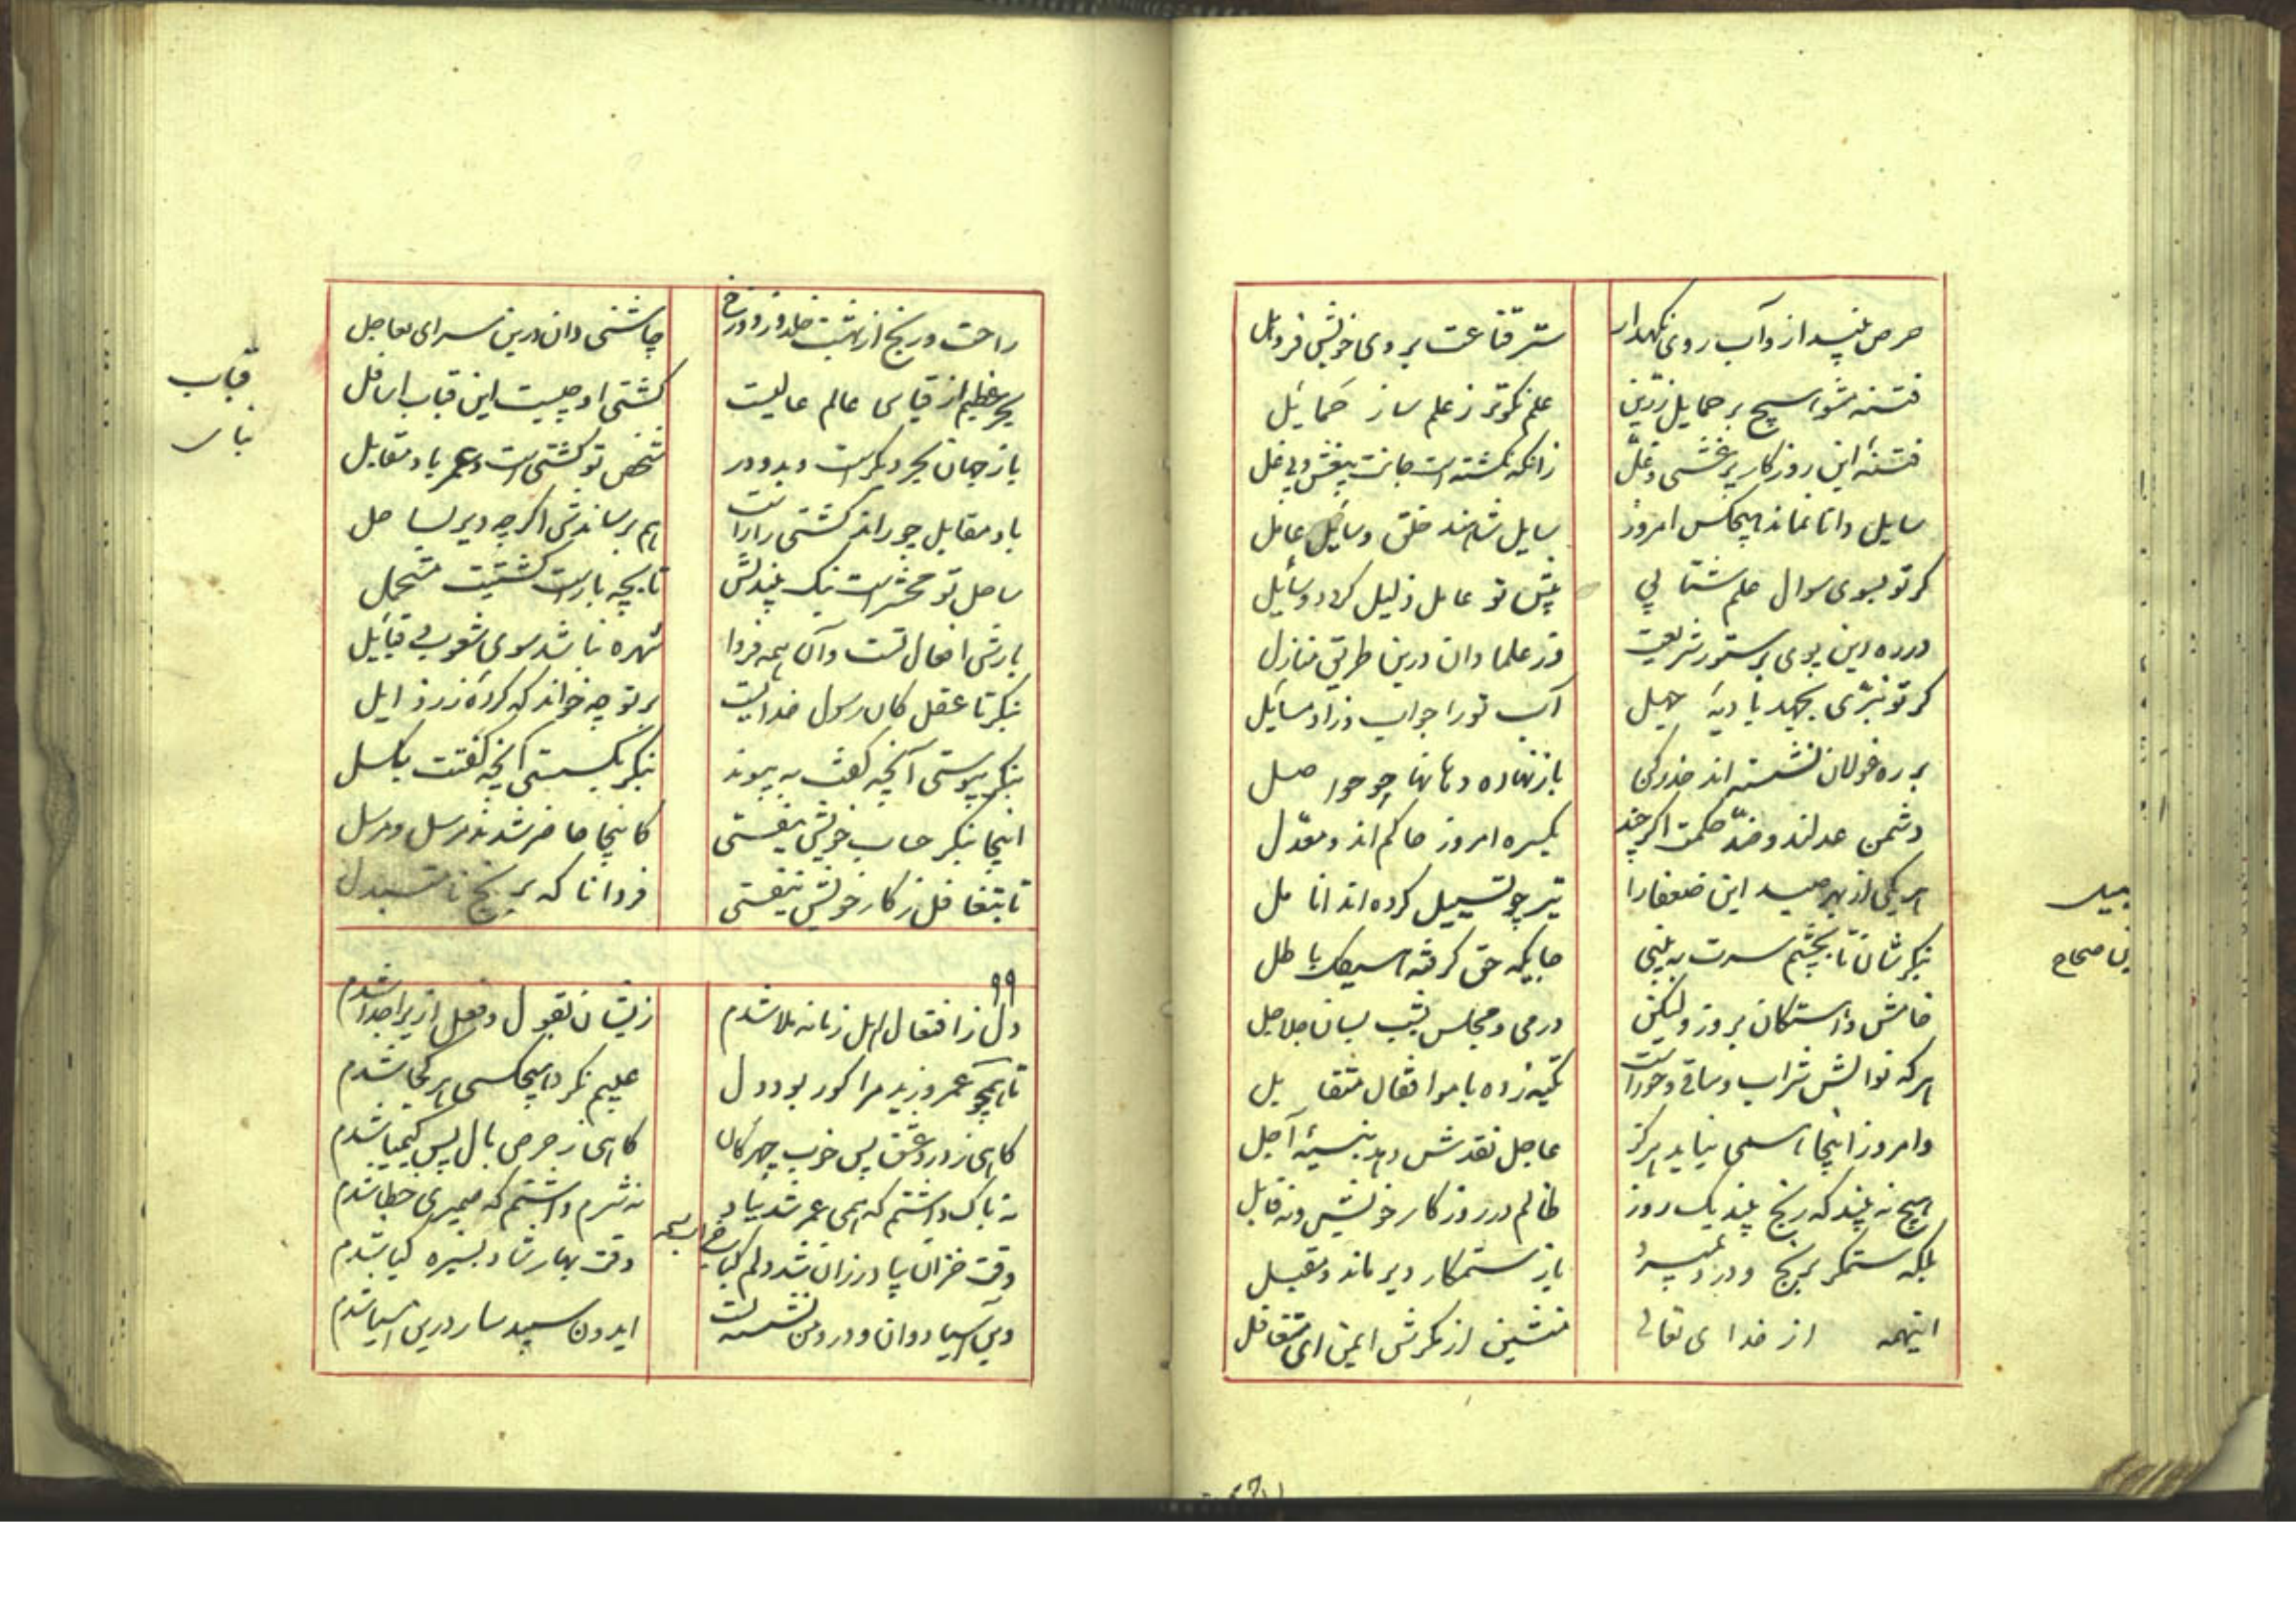 حرص بینداز و آب روی نگهدار
ستر قناعت بروی خویش فروهل
فتنه مشو هیچ بر حمایل زرین
علم نکوتر ز علم ساز حمایل
فتنه این روزگار پر غش و غل
زانکه نگشته است جانت بیغش و بی غل
سایل دانا نماند هیچکس امروز
سایل شاهند خلق و سایل عامل
گر تو بسوی سوال علم شتابی
پیش تو عامل ذلیل گردد و سایل
در ره دین پوی بر ستور شریعت
وز علما دان درین طریق منازل
گر تو ببری بجهد بادیه جهل
آب تو را جواب و زاد مسایل
بر ره غولان نشسته اند حذر کن
باز نهاده دهانها چو حواصل
دشمن عدلند و ضد حکمت اگر چند
یکسره امروز حاکم اند و معدل
هر یکی از بهر صید این ضعفا را
تیز چو نشپیل کرده اند انامل
بنگرشان تا بچشم سرت ببینی
جایگه حق گرفته هیکل باطل
خامش و آهستگان بروز ولیکن
در می و مجلس بشب بسان جلاجل
هر که نوالش شراب و ساقی و حور است
تکیه زده با موافقان متقابل
و امروز اینجا همی نیابد هرگز
عاجل نقدش دهد بنسیه آجل
هیچ نه بیند که رنج بیند یک روز
ظالم در روزگار خویش و نه قابل
بلکه ستمکش برنج و درد بمیرد
باز ستمکار دیر ماند و مقبل
اینهمه از خدای تعالی
منشین از مکرش ایمن ای متغافل
راحت و رنج از بهشت خلد و ز دوزخ
چاشنی دان درین سرای بعاجل
بحر عظیم از قیاس عالم عالیست
کشتی او چیست این قباب اسافل
باز جهان بحر دیگر است و بدو در
شخص تو کشتی است و عمر باد مقابل
باد مقابل چو راند کشتی را راست
هم برساندش اگر چه دیر بساحل
ساحل تو محشر است نیک بیندیش
تا بچه بار است کشتیت متحمل
بارش افعال تست و آن همه فردا
شهره بباشد سوی شعوب و قبایل
بنگر تا عقل کان رسول خدایست
بر تو چه خواند که کرده ز رذایل
بنگر پیوستی آنچه گفت به پیوند
بنگر بگسستی آنچه گفتت بگسل
اینجا بنگر حساب خویش بیفتی
کاینجا حاضر شدند مرسل و مرسل
تا بتغافل ز کار خویش نیفتی
فردا ناگه برنج نامتبدل
۹۹
دل ز افتعال اهل زمانه ملا شدم
زیشان بقول و فعل ازیرا جدا شدم
تا همچو عمرو و زید مرا کور بود دل
عیبم نکرد هیچکسی هر کجا شدم
گاهی ز درد عشق پس خوب چهرگان
گاهی ز حرص مال پس کیمیا شدم
نه باک داشتم که همی عمر شد بباد
نه شرم داشتم که همی زی خطا شدم
وقت خزان بباد رزان شد دلم گیا
وقت بهار شاد بسبزه گیا شدم
وین آسیا دوان و درو من نشسته پست
ایدون سپید سار درین آسیا شدم
قباب